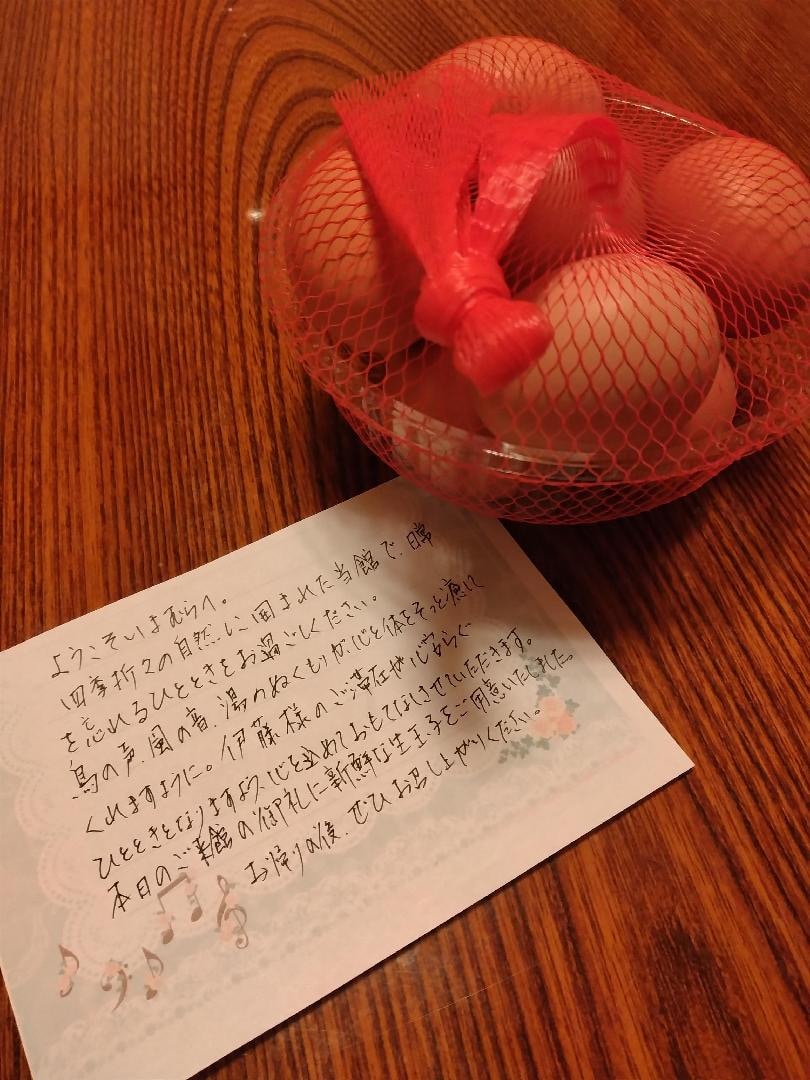 ようこそいまむらへ。
四季折々の自然に囲まれた当館で、日常
を忘れるひとときをお過ごしください。
鳥の声、風の音、湯のぬくもりが心と体をそっと癒して
くれますように。伊藤様のご滞在が心安らぐ
ひとときとなりますよう、心を込めておもてなしさせていただきます。
本日のご来館の御礼に新鮮な生玉子をご用意いたしました。
お帰りの後、ぜひお召し上がりください。